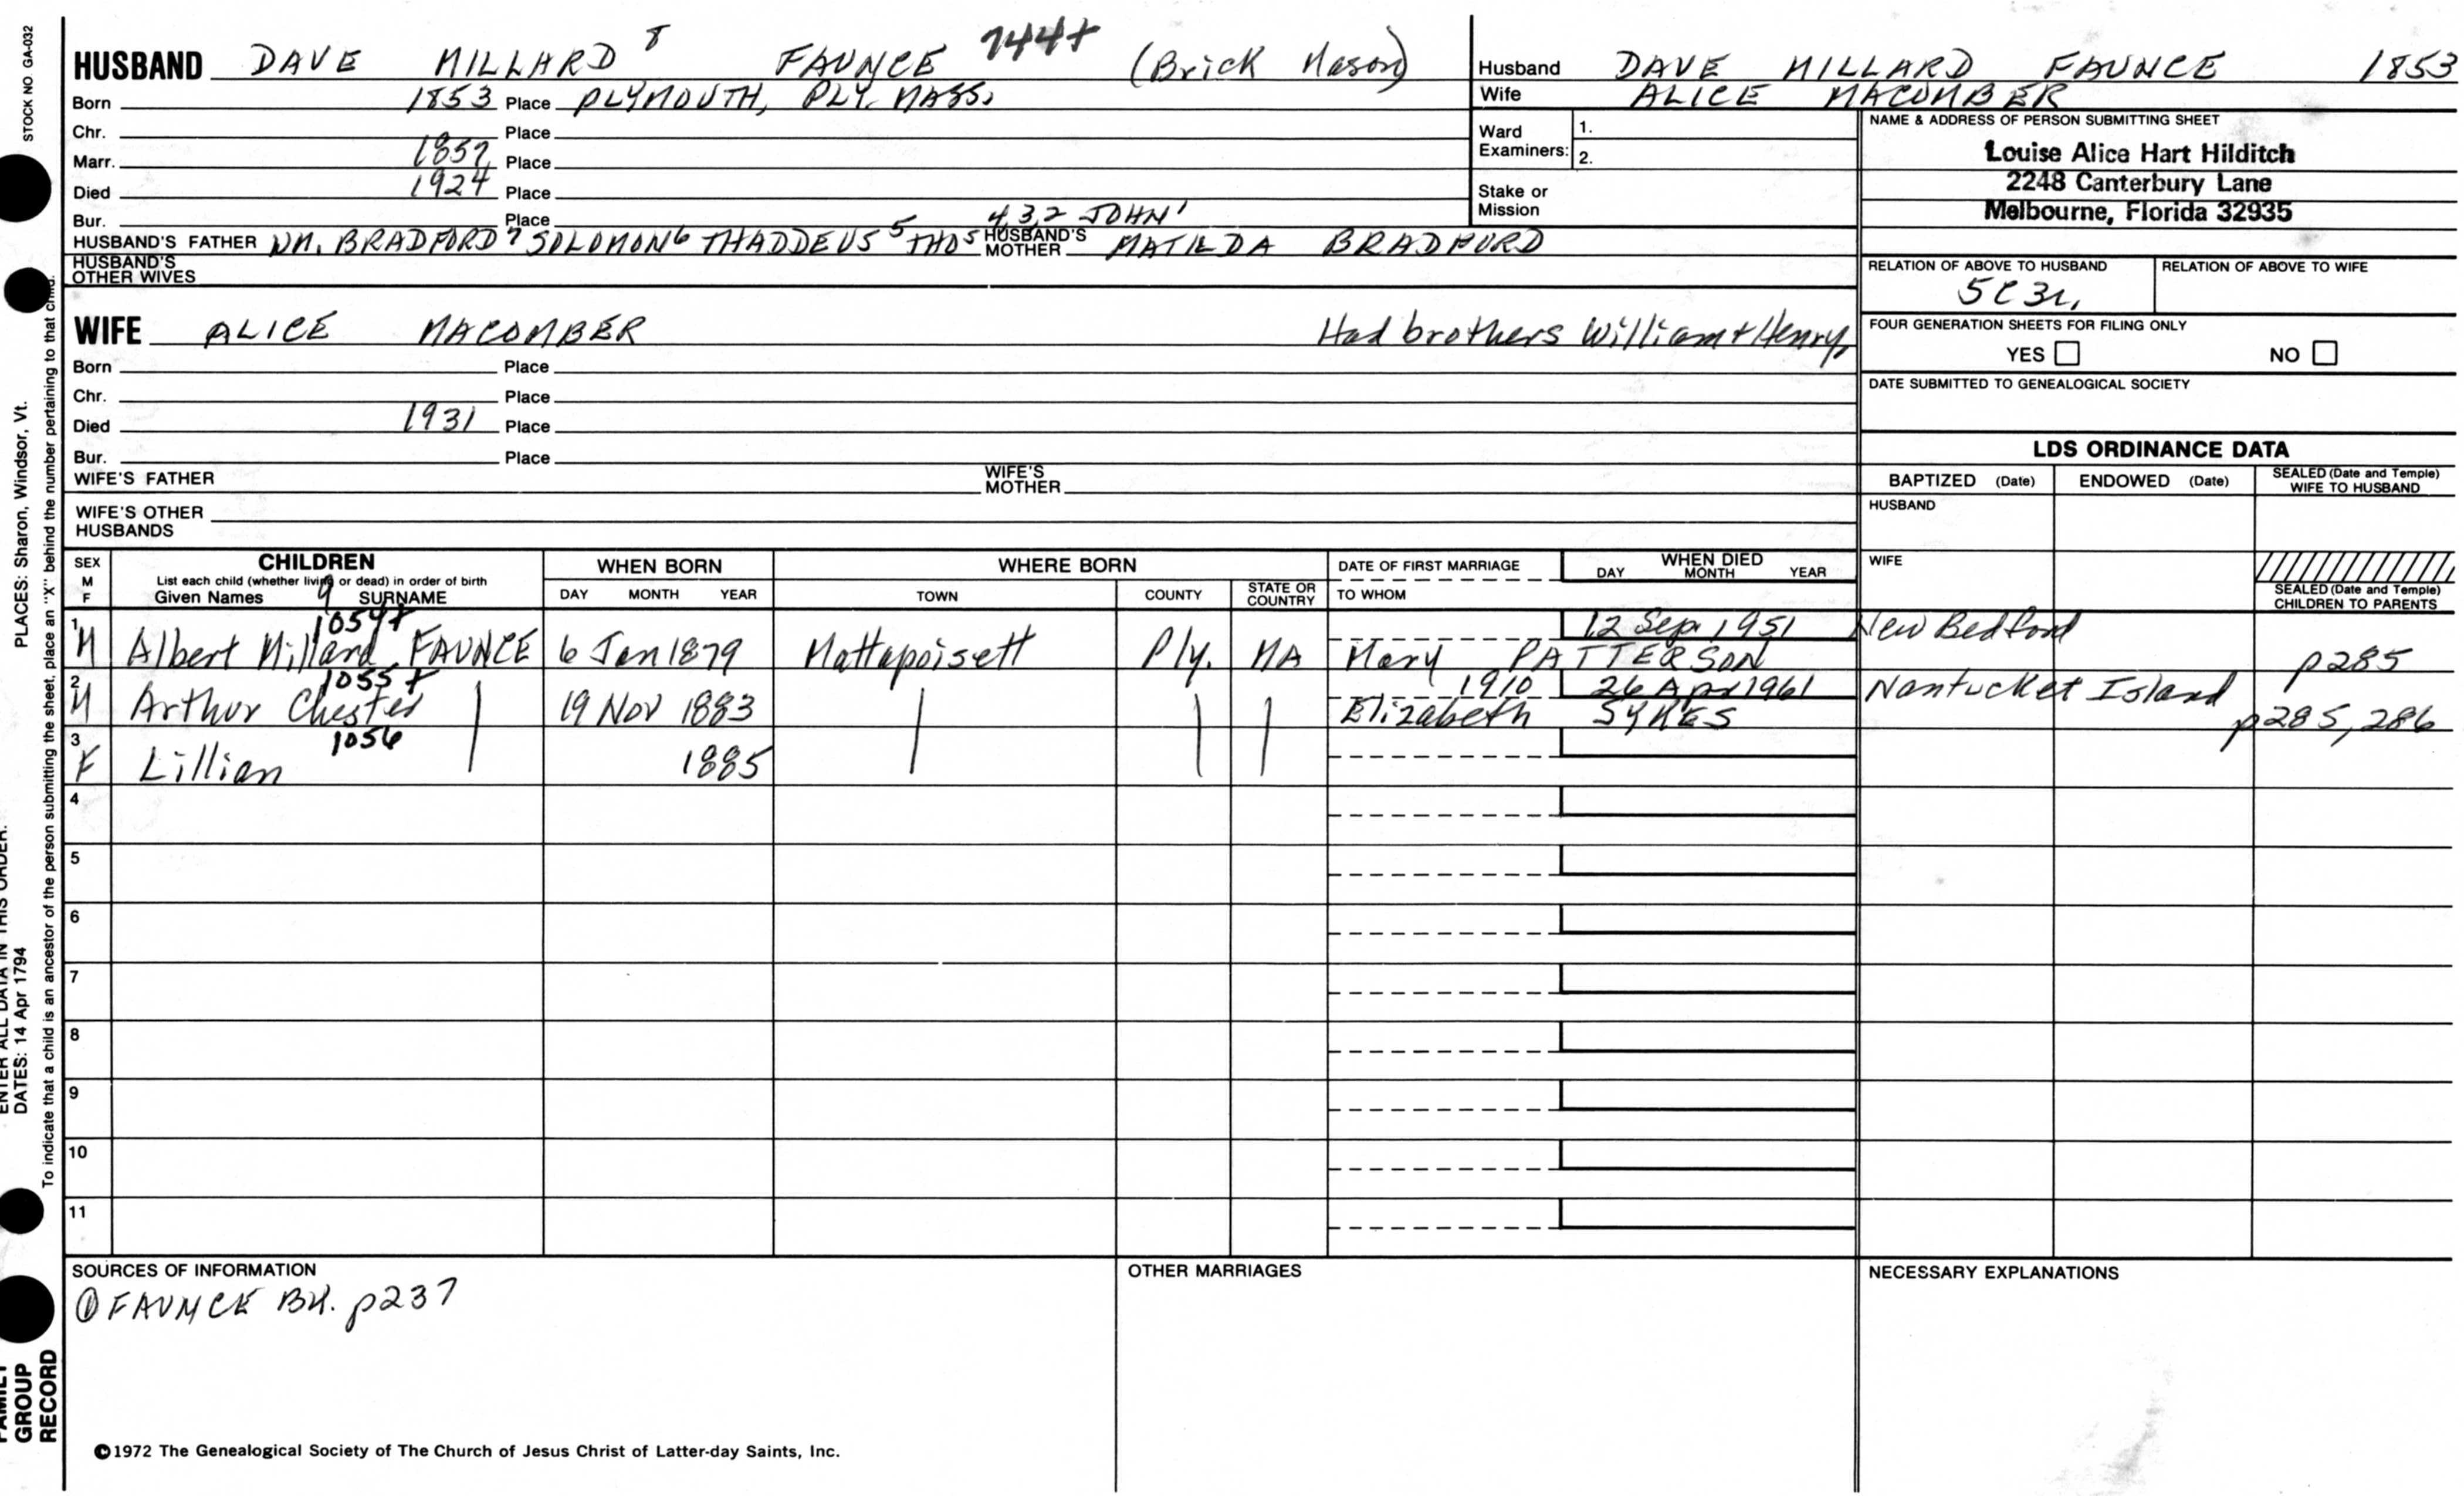 STOCK NO GA-032
HUSBAND DAVE MILLARD 8 FAUNCE 744+ (Brick Mason)
Born 1853 Place PLYMOUTH, PLY. MASS.
Chr. Place
Marr. Place
Died 1924 Place
Bur. Place
4,3,2 JOHN1
HUSBAND'S FATHER WM. BRADFORD7 SOLOMON6 THADDEUS5 THOS HUSBAND'S MOTHER MATILDA BRADFORD
HUSBAND'S OTHER WIVES
WIFE ALICE MACOMBER Had brothers William + Henry,
Born Place
Chr. Place
Died 1931 Place
Bur. Place
WIFE'S FATHER WIFE'S MOTHER
WIFE'S OTHER HUSBANDS
Husband DAVE MILLARD FAUNCE 1853
Wife ALICE MACOMBER
Ward Examiners: 1.
2.
Stake or Mission
NAME & ADDRESS OF PERSON SUBMITTING SHEET
Louise Alice Hart Hilditch
2248 Canterbury Lane
Melbourne, Florida 32935
RELATION OF ABOVE TO HUSBAND RELATION OF ABOVE TO WIFE
FOUR GENERATION SHEETS FOR FILING ONLY
YES NO
DATE SUBMITTED TO GENEALOGICAL SOCIETY
LDS ORDINANCE DATA
BAPTIZED (Date) ENDOWED (Date) SEALED (Date and Temple) WIFE TO HUSBAND
HUSBAND
WIFE
SEALED (Date and Temple) CHILDREN TO PARENTS
SEX M F
CHILDREN
List each child (whether living or dead) in order of birth
Given Names 9 SURNAME
WHEN BORN
DAY MONTH YEAR
WHERE BORN
TOWN COUNTY STATE OR COUNTRY
DATE OF FIRST MARRIAGE
TO WHOM
WHEN DIED
DAY MONTH YEAR
1054+ 12 Sep 1951 New Bedford
1 M Albert Millard FAUNCE 6 Jan 1879 Mattapoisett Ply. MA Mary PATTERSON p285
1055+ 1910 26 Apr 1961 Nantucket Island
2 M Arthur Chester 19 Nov 1883 Elizabeth SYKES p285, 286
1056
3 F Lillian 1885
4
5
6
7
8
9
10
11
SOURCES OF INFORMATION
① FAUNCE BK. p237
OTHER MARRIAGES
NECESSARY EXPLANATIONS
©1972 The Genealogical Society of The Church of Jesus Christ of Latter-day Saints, Inc.
ENTER ALL DATA IN THIS ORDER:
DATES: 14 Apr 1794 PLACES: Sharon, Windsor, Vt.
To indicate that a child is an ancestor of the person submitting the sheet, place an "X" behind the number pertaining to that child.
FAMILY GROUP RECORD